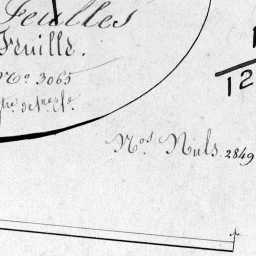 Feuilles
Feuille.
Nº. 3065
12
Nos Nuls 2849